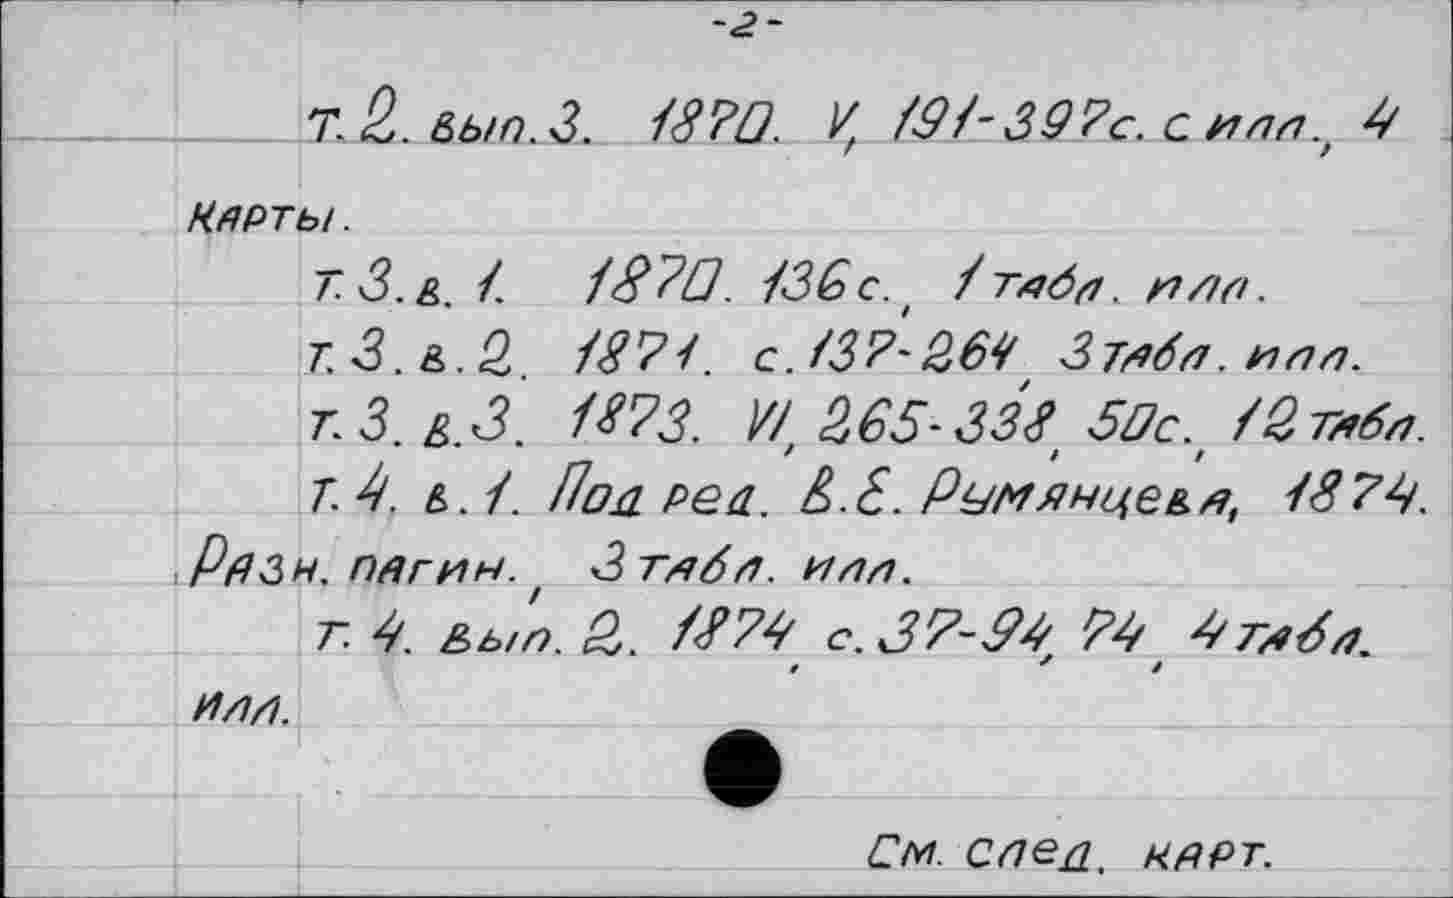 -2-
т.2. вып.3. 1870. V, 191-397с. с илл., 4
карты.
т.3.в.1. 1870. 136с., 1 табл. илл.
т.3.в.2. 1871. с.137-264, 3 табл. илл.
т.3.в.3. 1873. VI, 265-338, 50с., 12 табл.
т.4. в.1. Под ред. В.Е. Румянцева, 1874.
Разн. пагин., 3 табл. илл.
т.4. вып.2. 1874, с.37-94, 74, 4 табл.
илл.
См. след. карт.